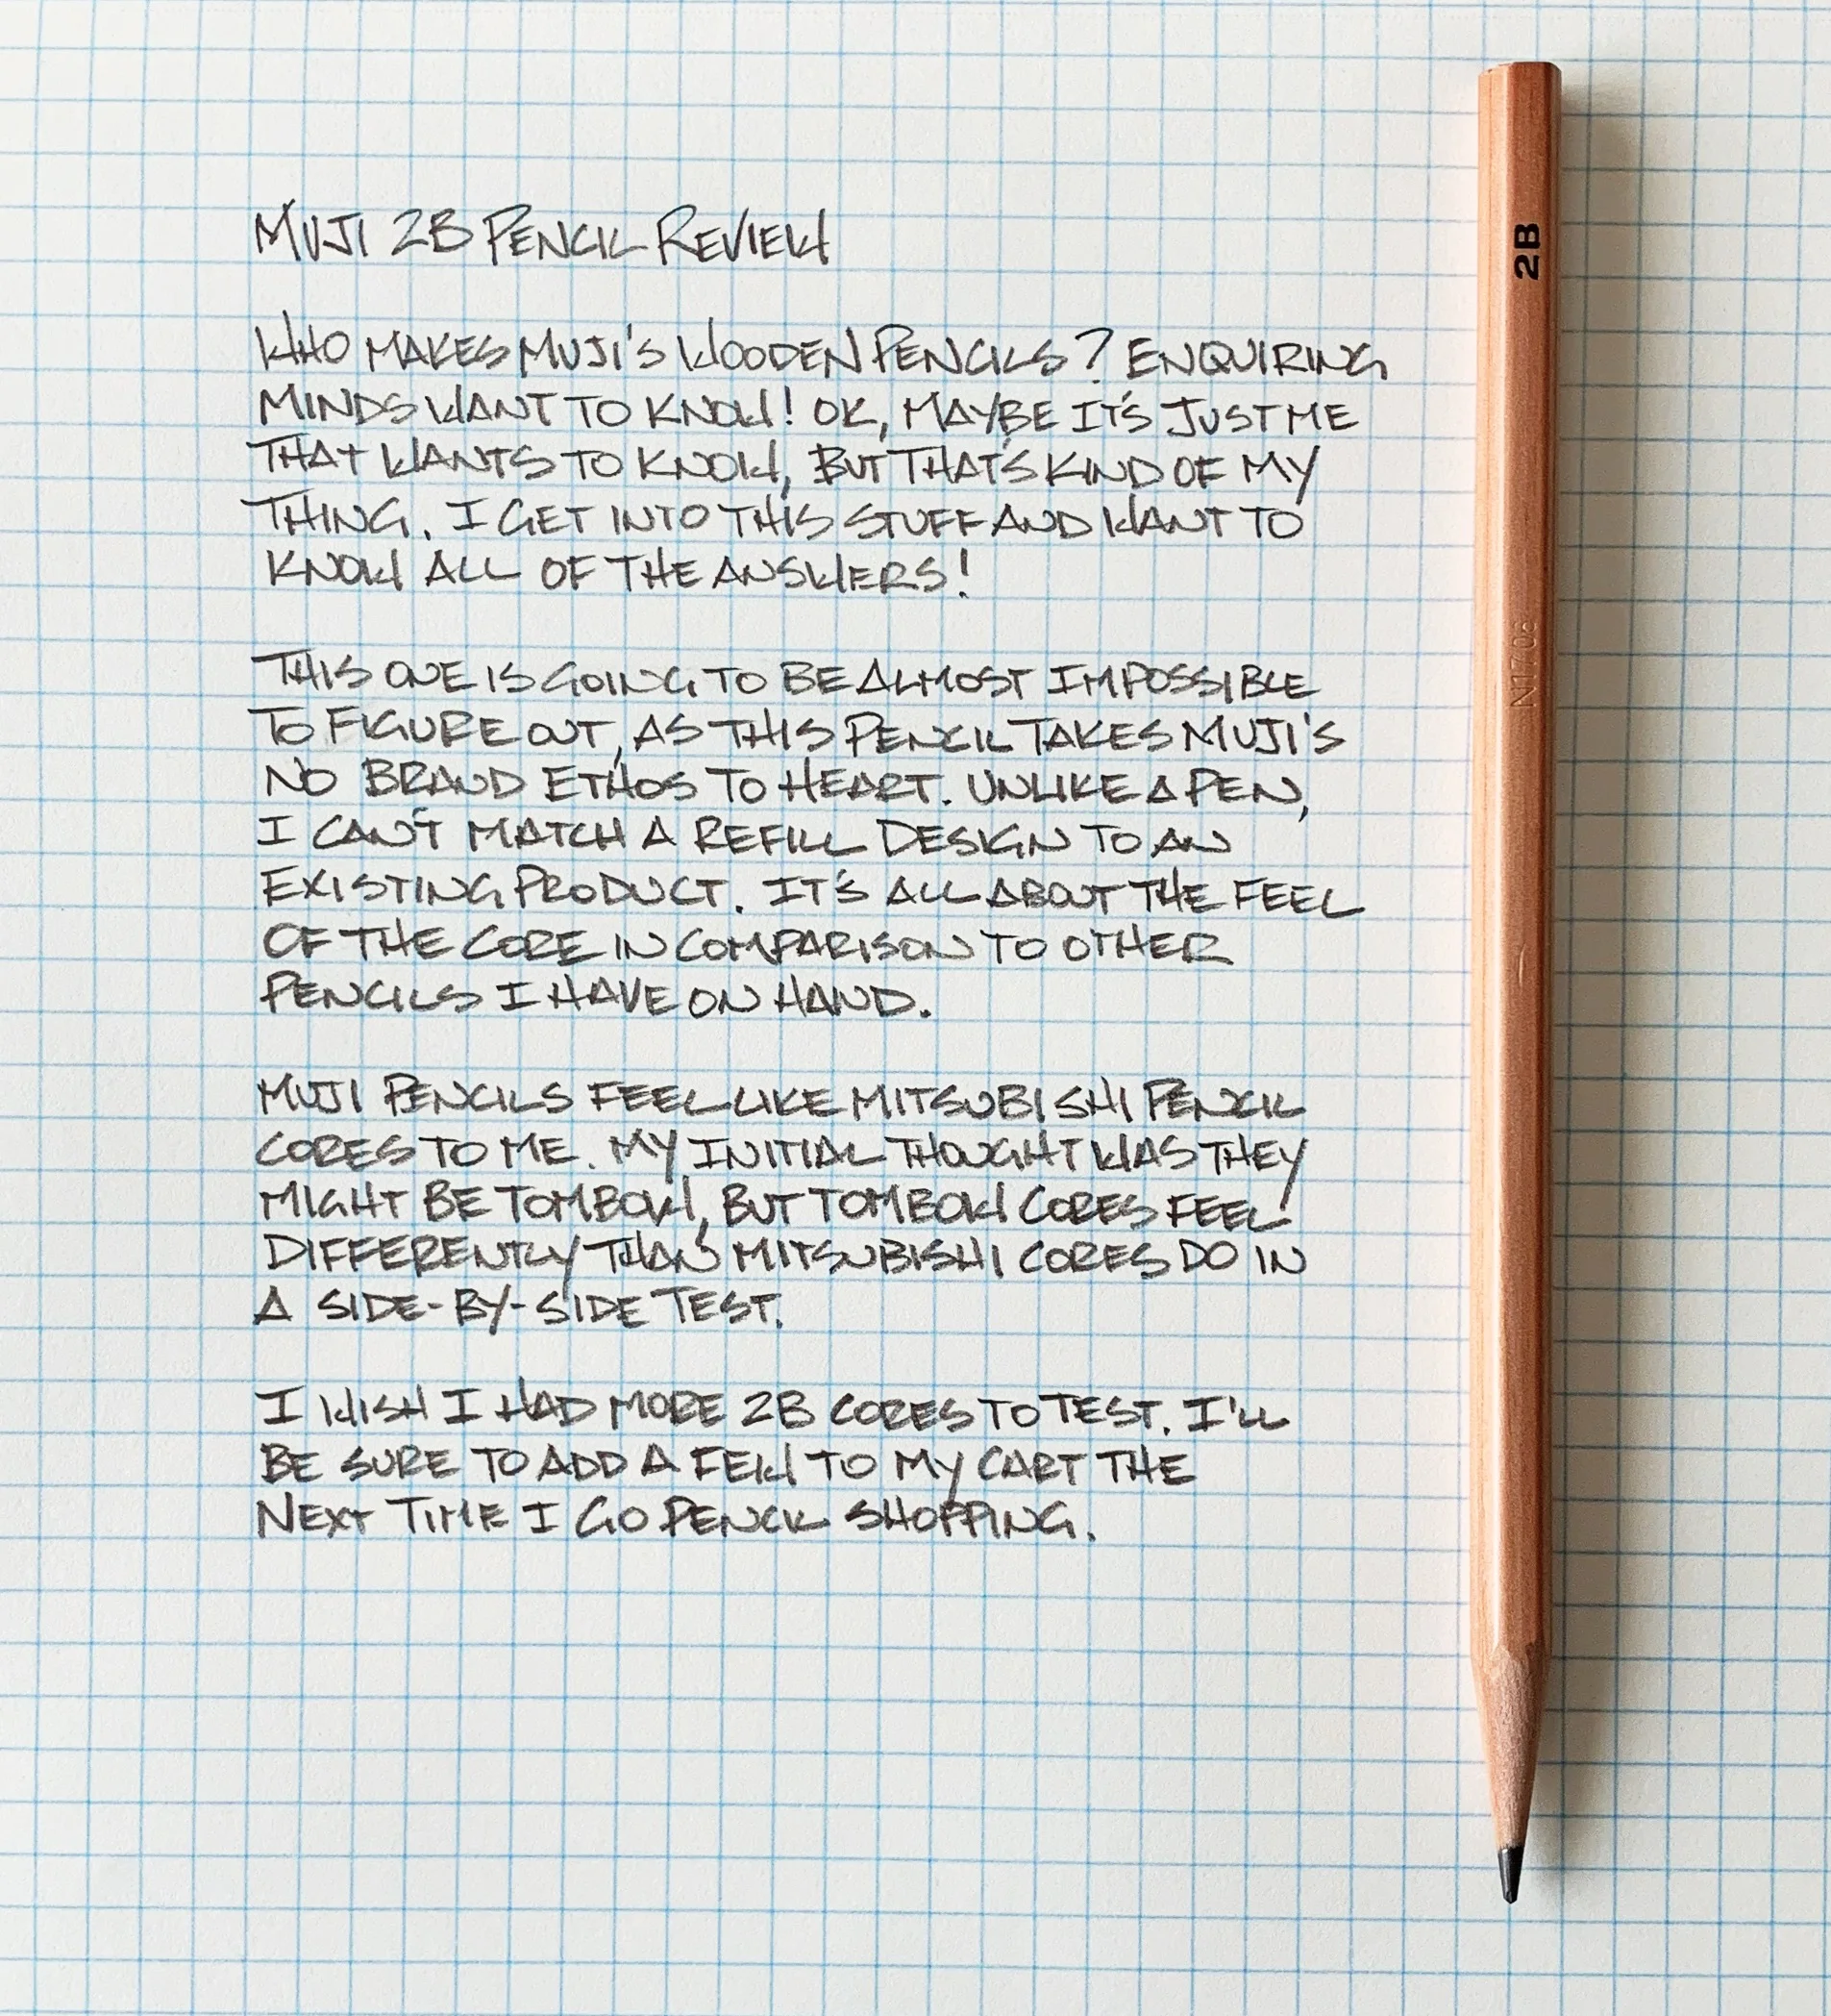 MUJI 2B PENCIL REVIEW
WHO MAKES MUJI'S WOODEN PENCILS? ENQUIRING
MINDS WANT TO KNOW! OK, MAYBE IT'S JUST ME
THAT WANTS TO KNOW, BUT THAT'S KIND OF MY
THING. I GET INTO THIS STUFF AND WANT TO
KNOW ALL OF THE ANSWERS!
THIS ONE IS GOING TO BE ALMOST IMPOSSIBLE
TO FIGURE OUT, AS THIS PENCIL TAKES MUJI'S
NO BRAND ETHOS TO HEART. UNLIKE A PEN,
I CAN'T MATCH A REFILL DESIGN TO AN
EXISTING PRODUCT. IT'S ALL ABOUT THE FEEL
OF THE CORE IN COMPARISON TO OTHER
PENCILS I HAVE ON HAND.
MUJI PENCILS FEEL LIKE MITSUBISHI PENCIL
CORES TO ME. MY INITIAL THOUGHT WAS THEY
MIGHT BE TOMBOW, BUT TOMBOW CORES FEEL
DIFFERENTLY THAN MITSUBISHI CORES DO IN
A SIDE-BY-SIDE TEST.
I WISH I HAD MORE 2B CORES TO TEST. I'LL
BE SURE TO ADD A FEW TO MY CART THE
NEXT TIME I GO PENCIL SHOPPING.
2B